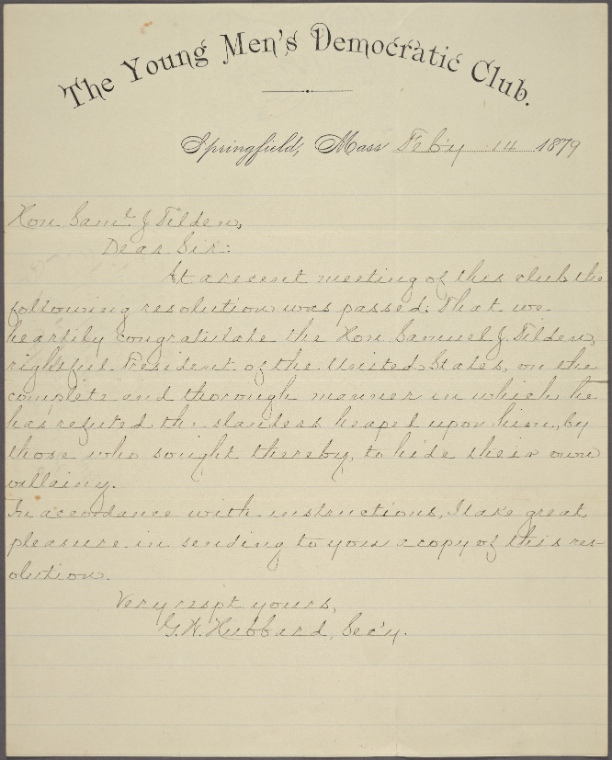 The Young Men's Democratic Club.
Springfield, Mass Feb'y 14 1879
Hon Saml J Tilden,
Dear Sir:
At a recent meeting of this club the
following resolution was passed: That we
heartily congratulate the Hon Samuel J. Tilden,
rightful President of the United States, on the
complete and thorough manner in which he
has refuted the slanders heaped upon him, by
those who sought thereby, to hide their own
villainy.
In accordance with instructions, I take great
pleasure in sending to you a copy of this res-
olution.
Very respt yours,
G. W. Hubbard, Sec'y.